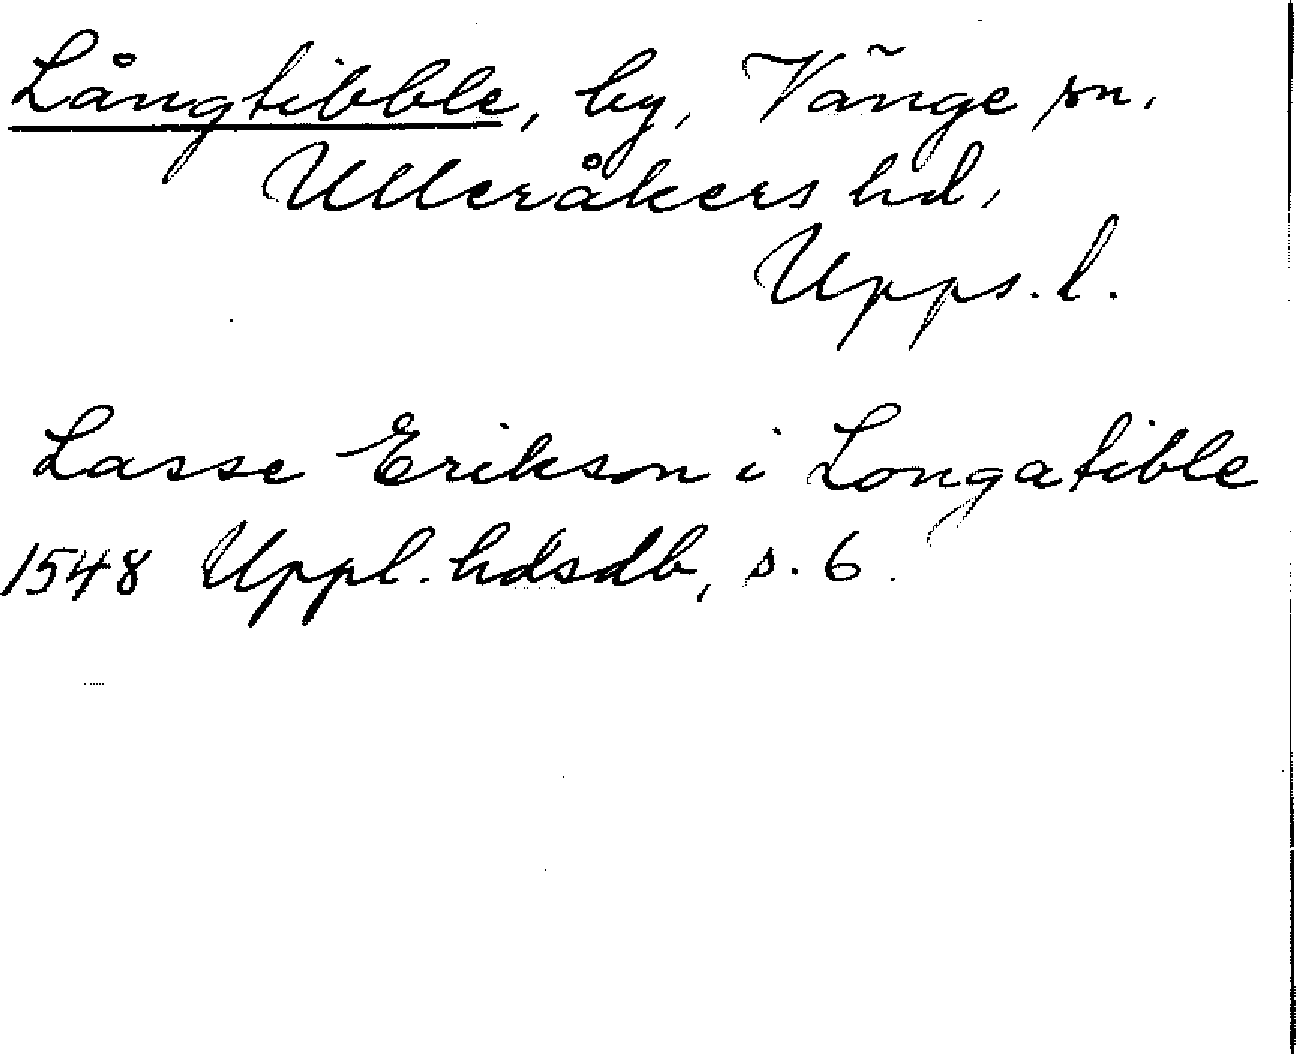 Långtibble, by, Vänge sn.
Ulleråkers hd,
Upps. l.
Lasse Erikson i Longatible
1548 Uppl. hdsdb, s. 6.